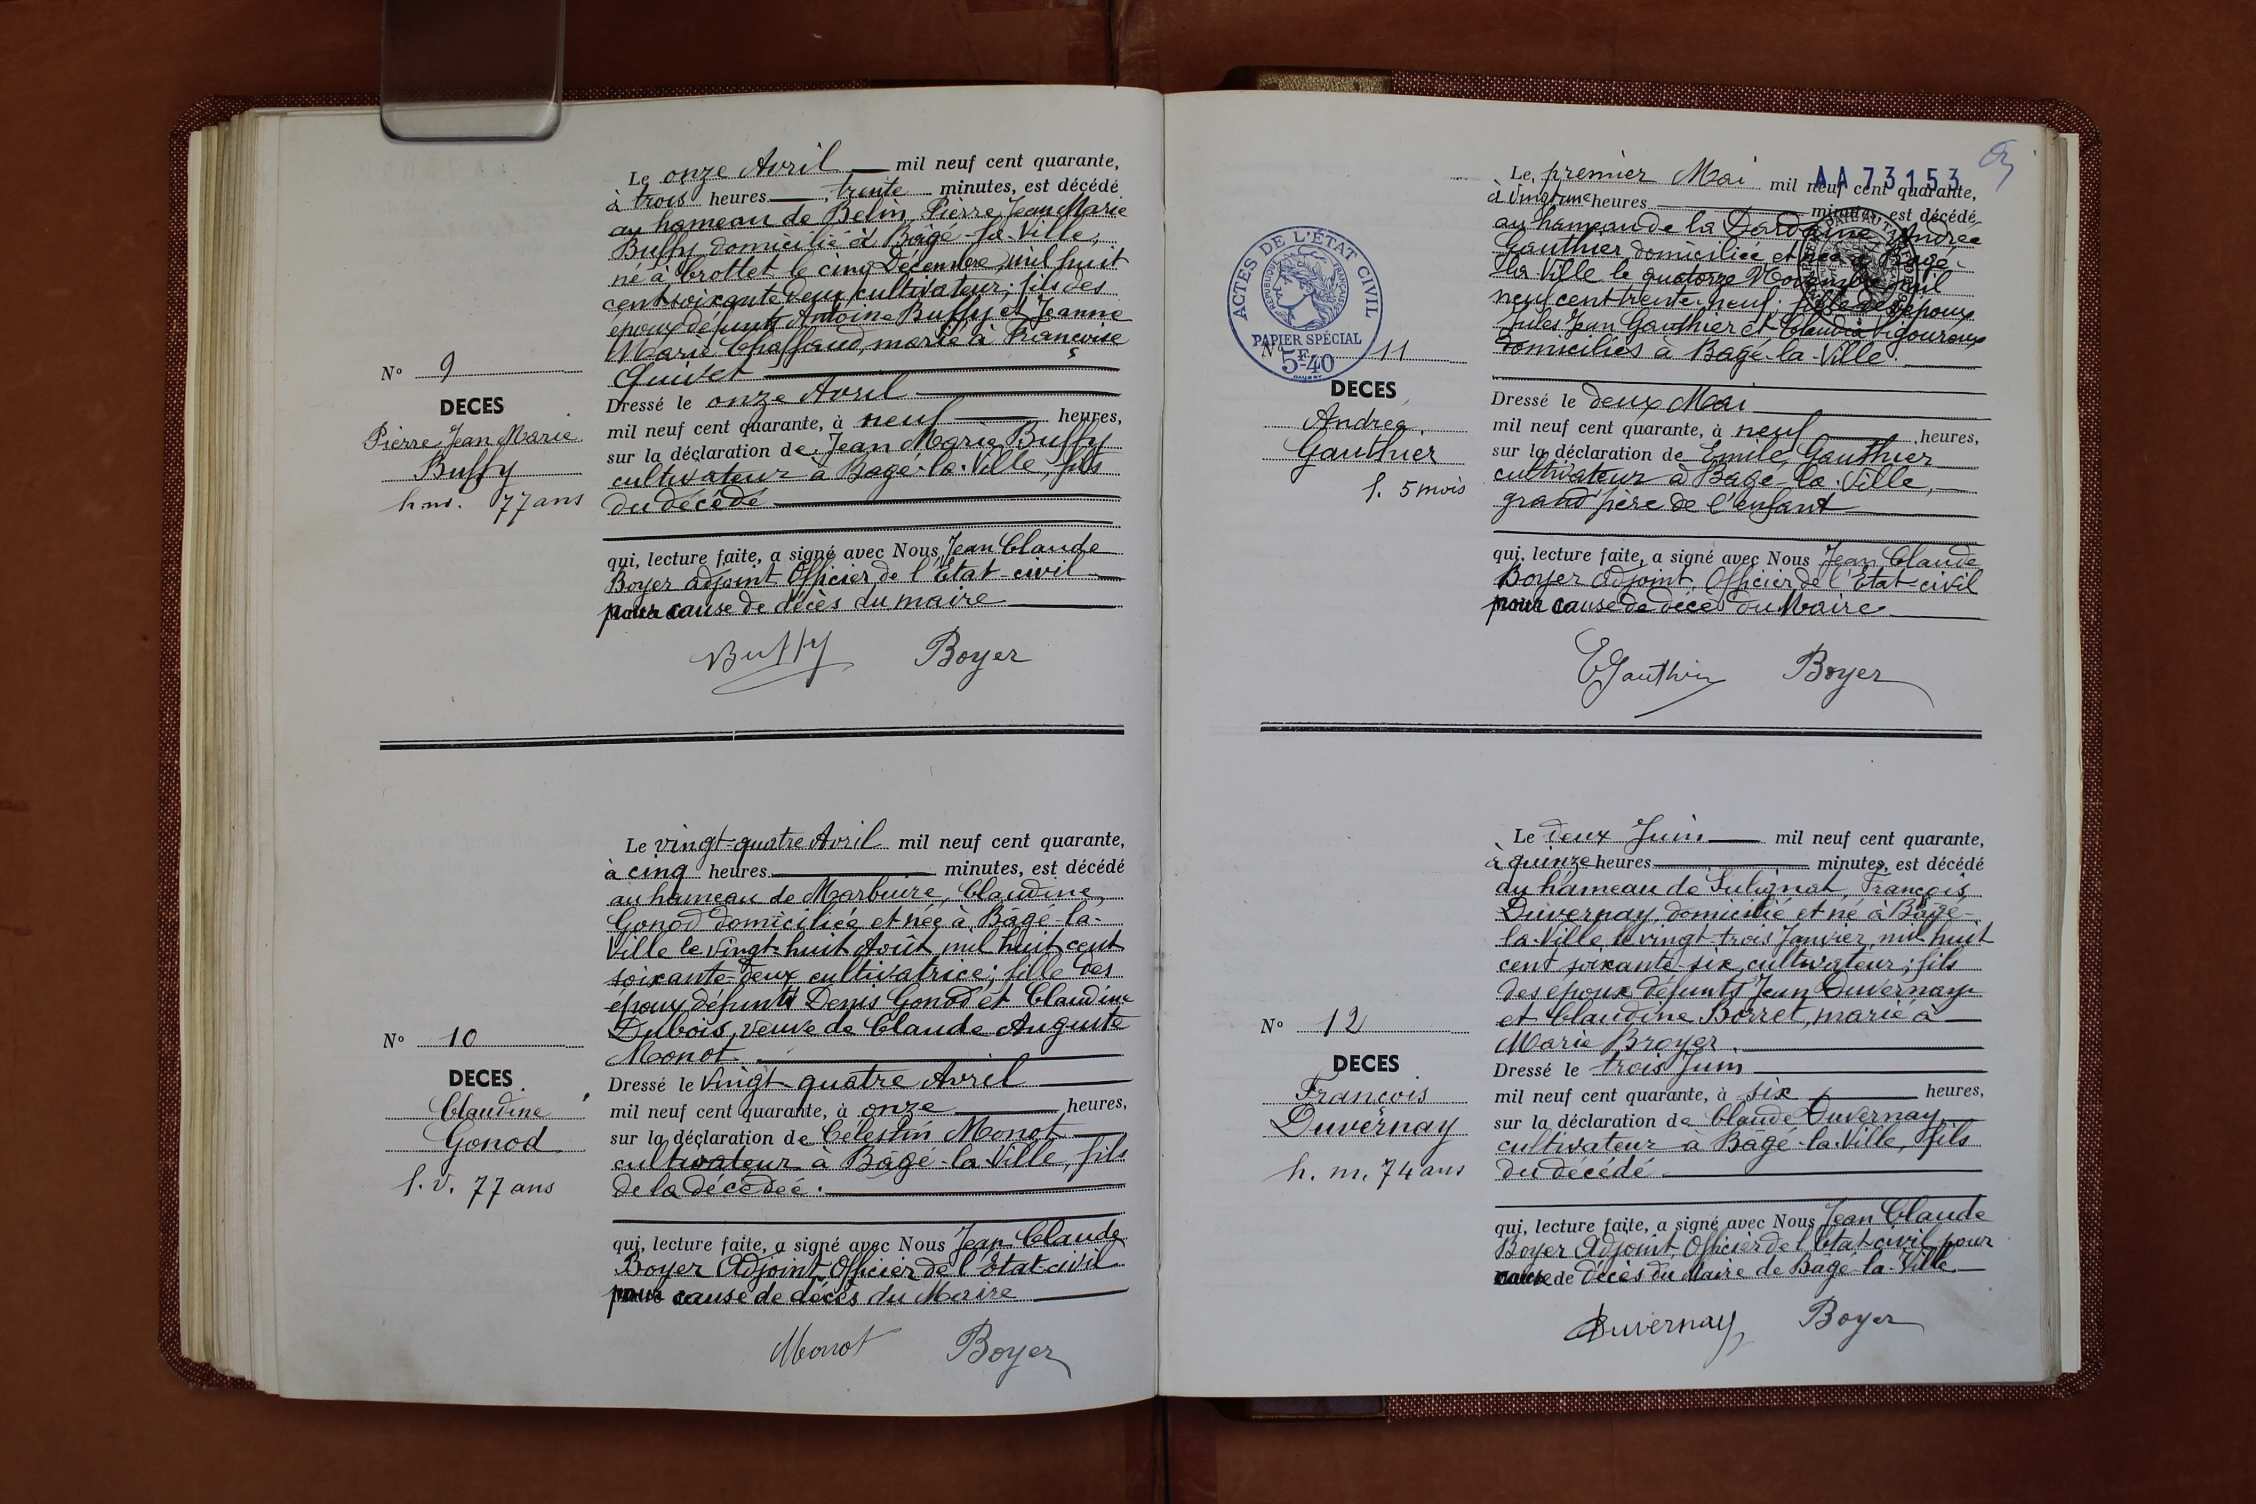 Le onze Avril mil neuf cent quarante,
à trois heures trente minutes, est décédé
au hameau de Belin, Pierre Jean Marie
Buffy domicilié à Bâgé-la-Ville,
né à Crottet le cinq Décembre mil huit
cent soixante deux cultivateur; fils des
époux défunts Antoine Buffy et Jeanne
Marie Chaffaud, marié à Françoise
Guivet
N° 9
DECES
Pierre Jean Marie
Buffy
h.m. 77 ans
Dressé le onze Avril
mil neuf cent quarante, à neuf heures,
sur la déclaration de Jean Marie Buffy
cultivateur à Bagé-la-Ville, fils
du décédé
qui, lecture faite, a signé avec Nous Jean Claude
Boyer adjoint Officier de l'État-civil
pour cause de décès du maire
Buffy Boyer
Le vingt-quatre Avril mil neuf cent quarante,
à cinq heures minutes, est décédé
au hameau de Marbuire, Claudine
Gonod domiciliée et née à Bâgé-la-
Ville le vingt-huit Août mil huit cent
soixante-deux cultivatrice; fille des
époux défunts Denis Gonod et Claudine
Dubois, veuve de Claude Auguste
Monot
N° 10
DECES
Claudine
Gonod
f. v. 77 ans
Dressé le vingt quatre Avril
mil neuf cent quarante, à onze heures,
sur la déclaration de Célestin Monot
cultivateur à Bâgé-la-Ville, fils
de la décédée.
qui, lecture faite, a signé avec Nous Jean Claude
Boyer Adjoint Officier de l'État-civil
pour cause de décès du Maire
Monot Boyer
AA 73153
Le premier Mai mil neuf cent quarante,
à vingt une heures minutes, est décédé
au hameau de la Andrée
Gauthier domiciliée et née à Bagé-
la-Ville le quatorze Novembre mil
neuf cent trente neuf; fille des époux
Jules Jean Gauthier et Claudia Vigoureux
domiciliés à Bagé-la-Ville
ACTES DE L'ÉTAT CIVIL
RÉPUBLIQUE FRANÇAISE
PAPIER SPÉCIAL
5F40
N° 11
DECES
Andrée
Gauthier
f. 5 mois
Dressé le deux Mai
mil neuf cent quarante, à neuf heures,
sur la déclaration de Emile Gauthier
cultivateur à Bagé-la-Ville,
grand'père de l'enfant
qui, lecture faite, a signé avec Nous Jean Claude
Boyer Adjoint, Officier de l'Etat-civil
pour cause de décès du Maire
E Gauthier Boyer
Le deux Juin mil neuf cent quarante,
à quinze heures minutes, est décédé
au hameau de Sulignat, François
Duvernay, domicilié et né à Bâgé-
la-Ville le vingt-trois Janvier mil huit
cent soixante six cultivateur; fils
des époux défunts Jean Duvernay
et Claudine Borret, marié à
Marie Broyer
N° 12
DECES
François
Duvernay
h. m. 74 ans
Dressé le trois Juin
mil neuf cent quarante, à six heures,
sur la déclaration de Claude Duvernay
cultivateur à Bâgé-la-Ville, fils
du décédé
qui, lecture faite, a signé avec Nous Jean Claude
Boyer Adjoint, Officier de l'Etat civil pour
cause de décès du Maire de Bagé-la-Ville
Duvernay Boyer